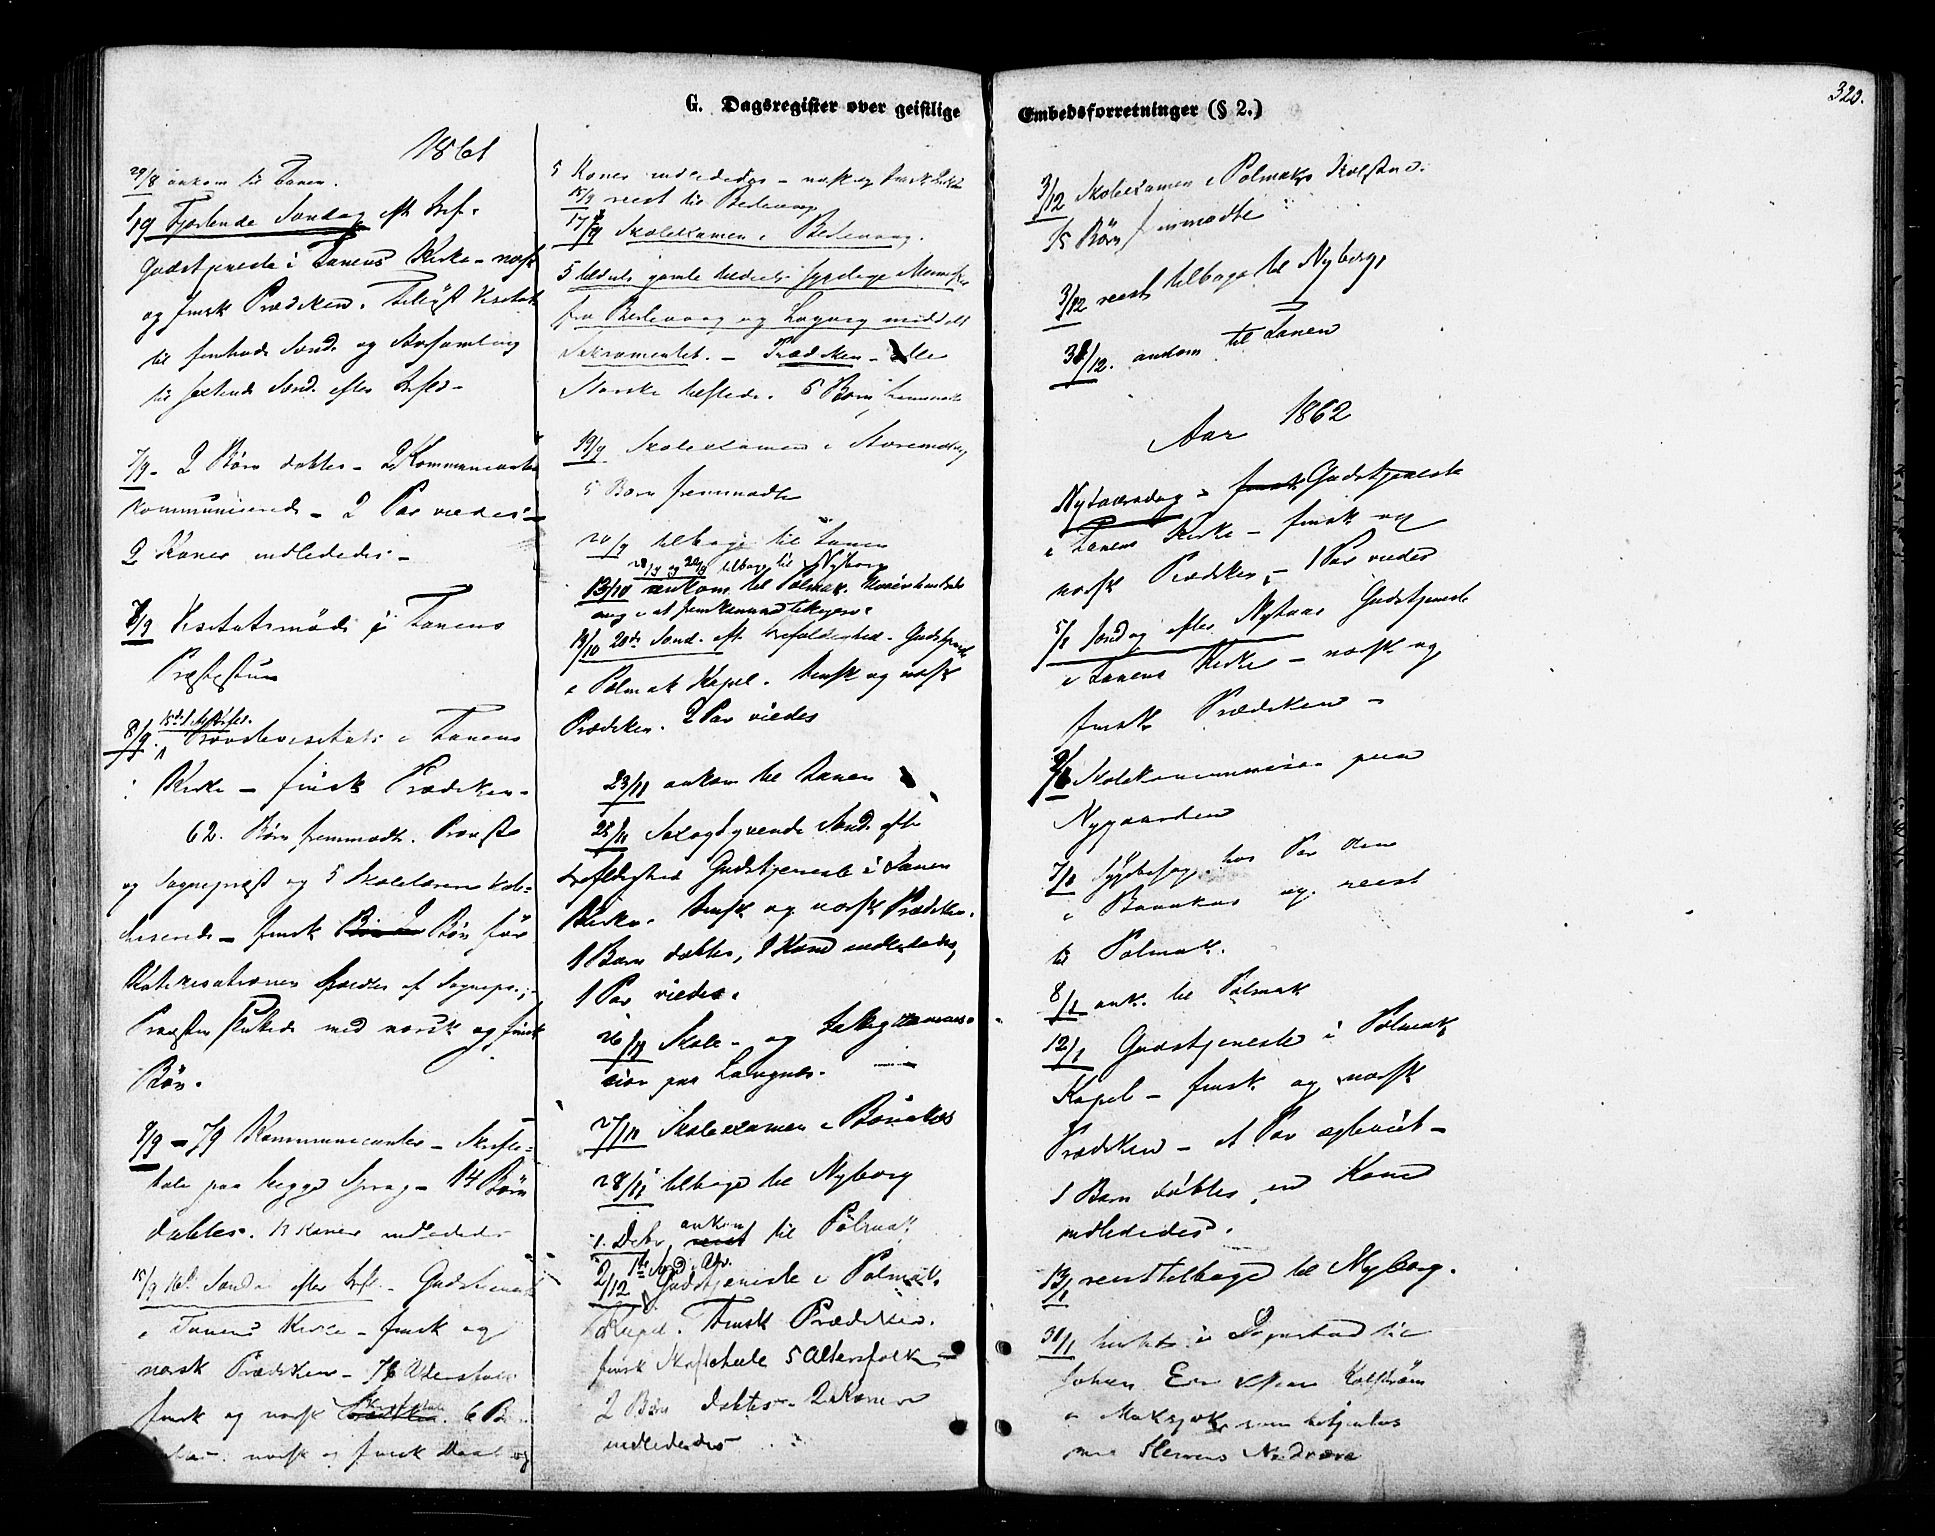 G. Dagsregister over geistlige
Embedsforretninger (§ 2.)
320.
1861
29/8 ankom til Tanen.
1/9 Fjortende Søndag eft. Tref.
Gudstjeneste i Tanens Kirke – norsk
og finsk Prædiken. Tillyst Visitats
til femtende Sønd. og
til sextende Sønd. efter Tref. –
7/9 – 2 Børn døbtes – 2 Kommunicanter
kommunicerede – 2 Par viedes –
2 Koner indlededes –
7/9 Visitatsmøde i Tanens
Præstestue
8/9 15de S. e. Trefol. Provstevisitats i Tanens
Kirke – finsk Prædiken –
62. Børn fremmødte. Provsten
og Sognepræst og 5 Skolelærere kate-
chiserede – finsk Bøn før
Katekisationen af Sognepr. –
Provsten sluttede med norsk og finsk
Bøn.
9/9 – 79 Kommunicanter – Skrifte-
tale paa begge Sprog – 14 Børn
døbtes. 12 Koner indlededes
15/9 16de Sønda efter Tref. – Gudstjeneste
i Tanens Kirke – finsk og
norsk Prædiken – 76 Altersfolk
finsk og norsk 6 Børn
norsk og finsk
5 Koner indlededes – norsk og finsk
15/9 reist til Berlevaag
17/9 Skolexamen i Berlevaag.
5 tildels gamle tildels sygelige Mennesker
fra Berlevaag og Løkvig meddelt
Sakramentet. – Prædiken – alle
Norske tilstede. 6 Børn fremmødte
19/9 Skolexamen i
5 Børn fremmødte
20/9 tilbage til Tanen
28/9 og 29/9 tilbage til Nyborg
13/10 ankom til Polmak.
14/10 20de Sønd. eft. trefoldighed – Gudstjeneste
i Polmak Kapel. Finsk og norsk
Prædiken. 2 Par viedes
23/11 ankom til Tanen
25/11 Sexogtyvende Sønd. efter
trefoldighed Gudstjeneste i Tanen
Kirke. Finsk og norsk Prædiken.
1 Barn døbtes, 1 Kone indlededes,
1 Par viedes.
26/11 Skole- og
sion paa Langnes.
27/11 Skolexamen i Bonakas
28/11 tilbage til Nyborg
1. Decbr. ankom til Polmak
2/12 1ste Sønd. i Adv. Gudstjeneste i Polmak
Kapel. Finsk Prædiken.
finsk Skriftetale 5 Altersfolk –
2 Børn døbtes – 2 Koner
indlededes
3/12 Skolexamen i Polmaks Skolestue.
15 Børn fremmødte
3/12 reist tilbage til Nyborg
31/12. ankom til Tanen
Aar 1862
Nytaarsdag – Gudstjeneste
i Tanens Kirke – finsk og
norsk Prædiken – 1 Par viedes
5/1 Søndag efter Nytaar Gudstjeneste
i Tanens Kirke – norsk og
finsk Prædiken –
Skolekommission paa
Nygaarden
7/1 Sygebesøg hos Per
i Bonakas og reist
til Polmak.
8/1 ank. til Polmak
12/1 Gudstjeneste i Polmak
Kapel – finsk og norsk
Prædiken – et Par ægteviet –
1 Barn døbtes, en Kone
indlededes.
13/1 reist tilbage til Nyborg.
30/1
Johan
i som